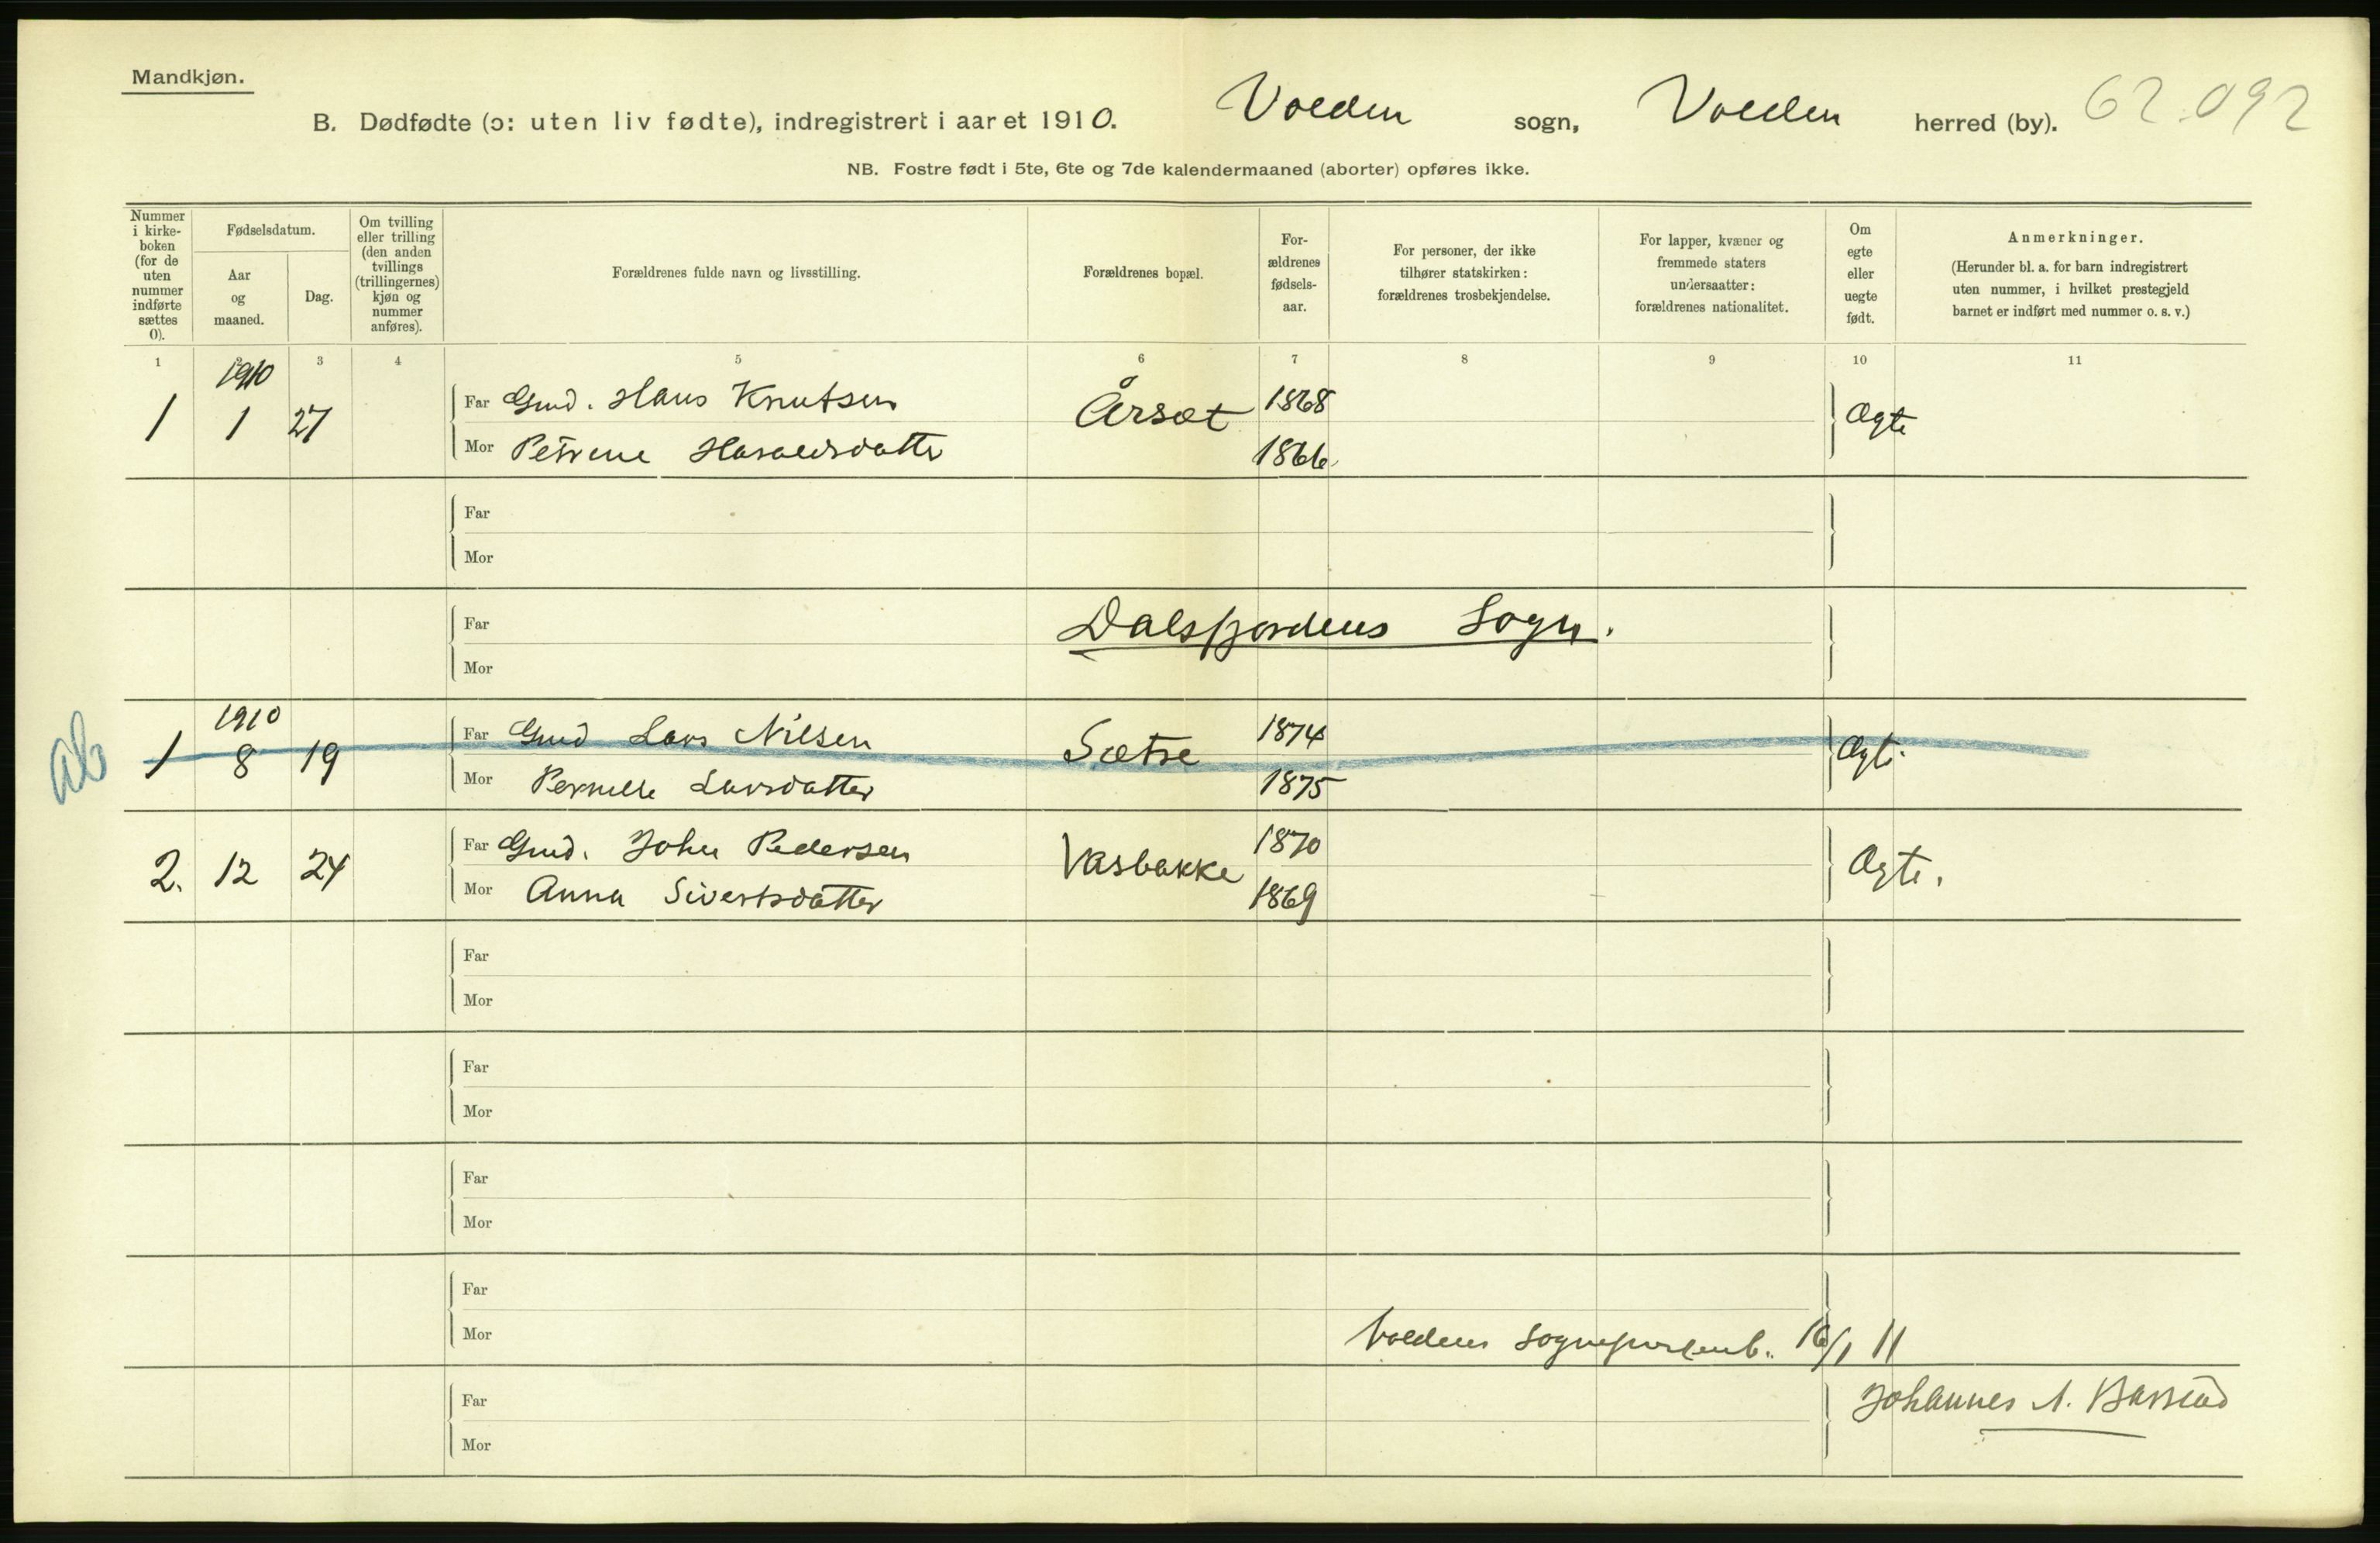 Mandkjøn.
B. Dødfødte (ɔ: uten liv fødte), indregistrert i aaret 1910. Volden sogn, Volden herred (by). 62.092
NB. Fostre født i 5te, 6te og 7de kalendermaaned (aborter) opføres ikke.
Nummer i kirke- boken (for de uten nummer indførte sættes 0).
Fødselsdatum.
Aar og maaned.
Dag.
Om tvilling eller trilling (den anden tvillings (trillingernes) kjøn og nummer anføres).
Forældrenes fulde navn og livsstilling.
Forældrenes bopæl.
For- ældrenes fødsels- aar.
For personer, der ikke tilhører statskirken: forældrenes trosbekjendelse.
For lapper, kvæner og fremmede staters undersaatter: forældrenes nationalitet.
Om egte eller uegte født.
Anmerkninger.
(Herunder bl. a. for barn indregistrert uten nummer, i hvilket prestegjeld barnet er indført med nummer o. s. v.)
1 2 3 4 5 6 7 8 9 10 11
1910
1 1 27 Far Gmd. Hans Knutsen Årsæt 1868 Ægte
Mor Petrine Haraldsdatter 1866
Far
Mor
Far Dalsfjordens Sogn.
Mor
1910
ab 1 8 19 Far Gmd Lars Nilsen Sætre 1874 Ægte
Mor Pernille Larsdatter 1875
2. 12 24 Far Gmd. John Pedersen Vasbakke 1870 Ægte.
Mor Anna Sivertsdatter 1869
Far
Mor
Far
Mor
Far
Mor
Far
Mor Voldens 16/1 11
Far Johannes A. Barstad
Mor